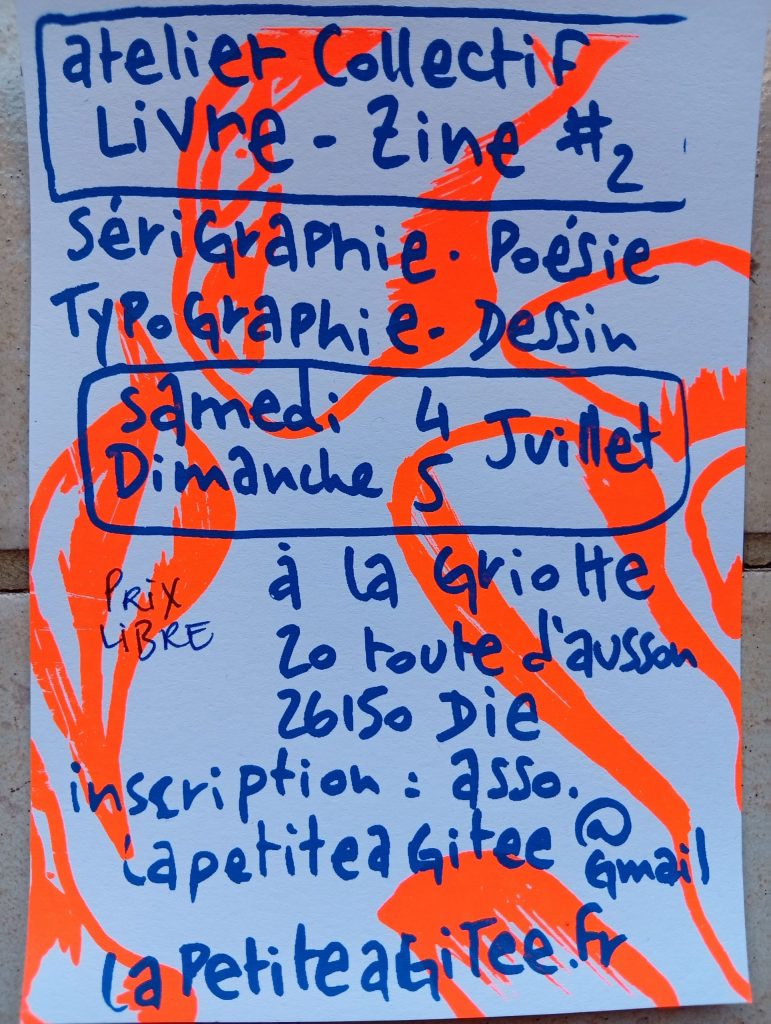 atelier Collectif
Livre - Zine #2
SériGraphie. Poésie
TypoGraphie - Dessin
Samedi 4
Dimanche 5 Juillet
à la Griotte
PRIX
LIBRE
20 route d'ausson
26150 Die
inscription : asso.
LapetiteaGitee @Gmail
LaPetiteaGiTee.fr